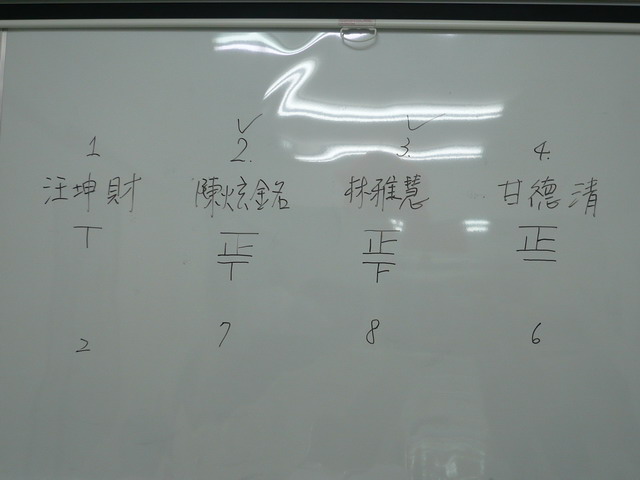 ✓ ✓
1 2. 3. 4.
汪坤財 陳炫銘 林雅慧 甘德清
丅 正丅 正下 正一
2 7 8 6